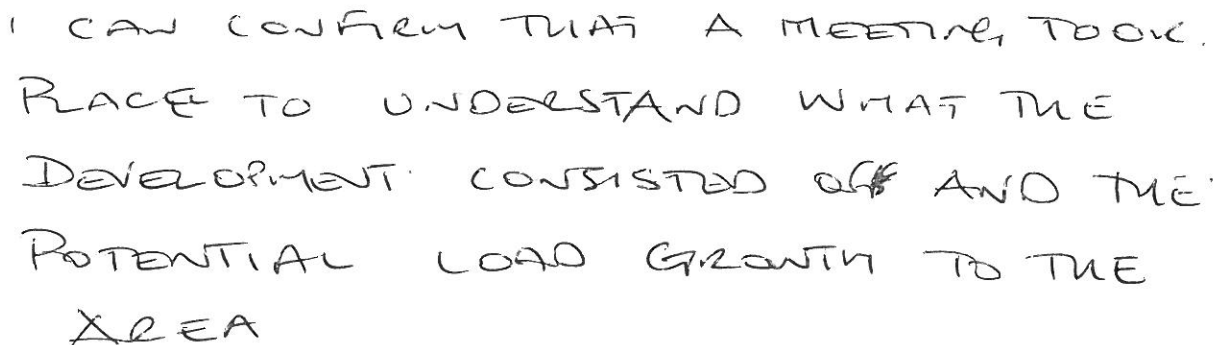 I CAN CONFIRM THAT A MEETING TOOK.
PLACE TO UNDERSTAND WHAT THE
DEVELOPMENT CONSISTED OFF AND THE
POTENTIAL LOAD GROWTH TO THE
AREA